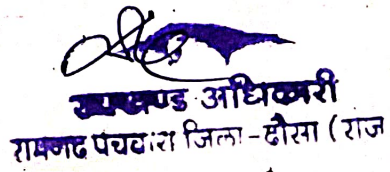 उपखण्ड अधिकारी
रामगढ पंचवारा जिला-दौसा (राज